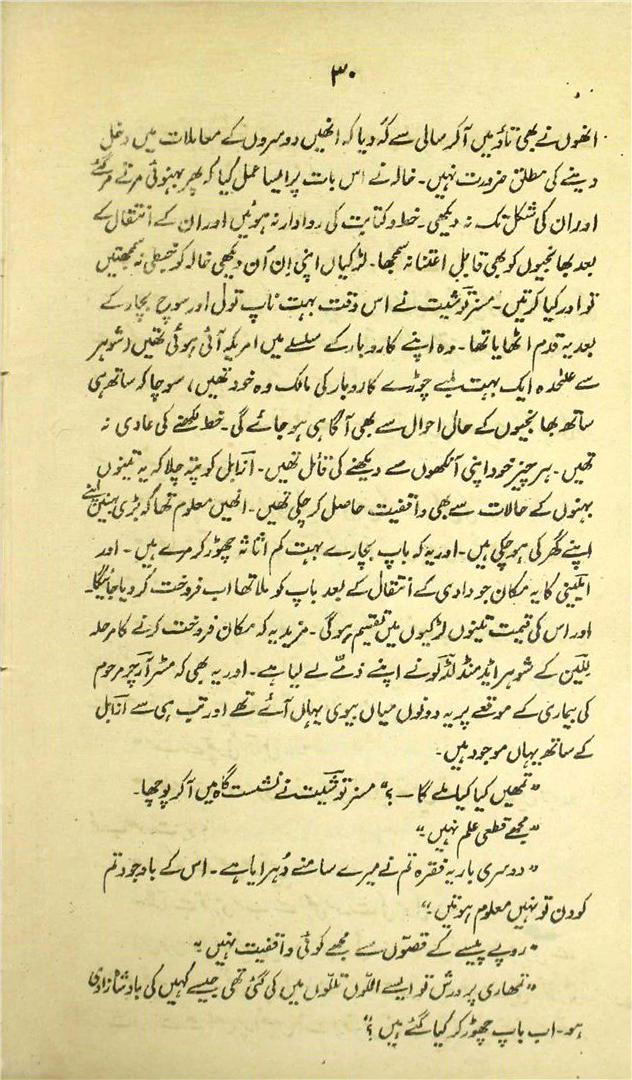 ۳۰
انھوں نے بھی تاؤ میں آکر سالی سے کہہ دیا کہ انھیں دوسروں کے معاملات میں دخل
دینے کی مطلق ضرورت نہیں۔ خالہ نے اس بات پر ایسا عمل کیا کہ پھر بہنوئی مرتے مر گئے
اور ان کی شکل تک نہ دیکھی۔ خط و کتابت کی روادار نہ ہوئیں اور ان کے انتقال کے
بعد بھانجیوں کو بھی قابلِ اعتنا نہ سمجھا۔ لڑکیاں اپنی اِن اَن دیکھی خالہ کو خبطی نہ سمجھتیں
تو اور کیا کرتیں۔ مسز توشیت نے اس وقت بہت ناپ تول اور سوچ بچار کے
بعد یہ قدم اٹھایا تھا۔ وہ اپنے کاروبار کے سلسلے میں امریکہ آئی ہوئی تھیں (شوہر
سے علٰحدہ ایک بہت لمبے چوڑے کاروبار کی مالک وہ خود تھیں، سوچا کہ ساتھ ہی
ساتھ بھانجیوں کے حالی احوال سے بھی آگاہی ہو جائے گی۔ خط لکھنے کی عادی نہ
تھیں۔ ہر چیز خود اپنی آنکھوں سے دیکھنے کی قائل تھیں۔ ازابل کو پتہ چلا کہ یہ تینوں
بہنوں کے حالات سے بھی واقفیت حاصل کر چکی تھیں۔ انھیں معلوم تھا کہ بڑی بہنیں اپنے
اپنے گھر کی ہو چکی ہیں۔ اور یہ کہ باپ بچارے بہت کم اثاثہ چھوڑ کر مرے ہیں۔ اور
ایلبنی کا یہ مکان جو دادی کے انتقال کے بعد باپ کو ملا تھا اب فروخت کر دیا جائیگا۔
اور اس کی قیمت تینوں لڑکیوں میں تقسیم ہو گی۔ مزید یہ کہ مکان فروخت کرنے کا مرحلہ
للین کے شوہر ایڈمنڈ لڈلو نے اپنے ذمّے لے لیا ہے۔ اور یہ بھی کہ مسٹر آرچر مرحوم
کی بیماری کے موقعے پر یہ دونوں میاں بیوی یہاں آئے تھے اور تب ہی سے ازابل
کے ساتھ یہاں موجود ہیں۔
"تمھیں کیا کیا ملے گا ــ ؟" مسز توشیت نے نشست گاہ میں آکر پوچھا۔
"مجھے قطعی علم نہیں۔"
"دوسری بار یہ فقرہ تم نے میرے سامنے دُہرایا ہے۔ اس کے باوجود تم
کودن تو نہیں معلوم ہوتیں۔"
"روپے پیسے کے قصّوں سے مجھے کوئی واقفیت نہیں۔"
"تمھاری پرورش تو ایسے اللّوں تللّوں میں کی گئی تھی جیسے کہیں کی بادشاہزادی
ہو۔ اب باپ چھوڑ کر کیا گئے ہیں؟"